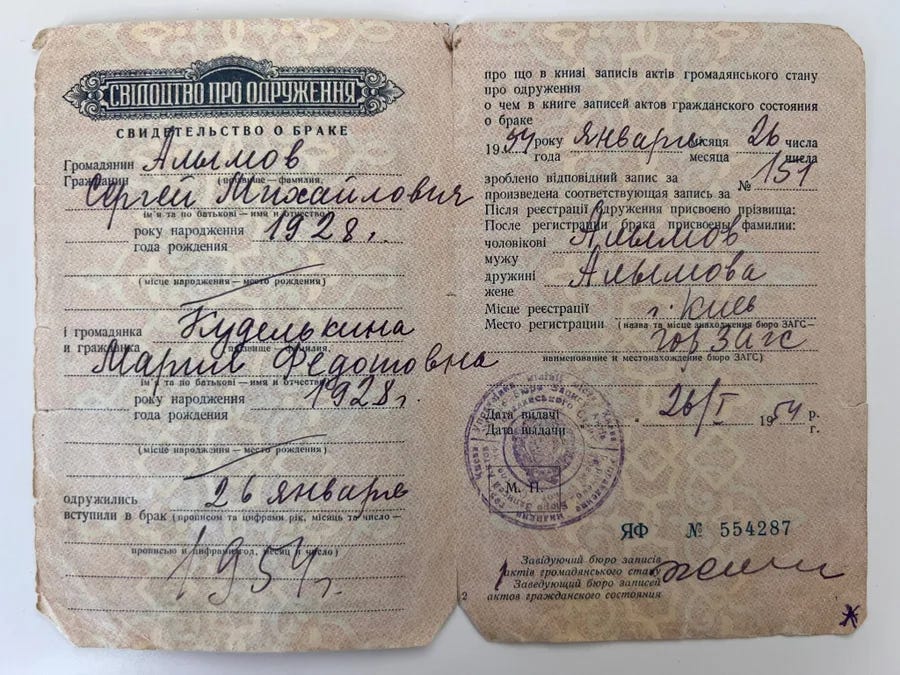 СВІДОЦТВО ПРО ОДРУЖЕННЯ
СВИДЕТЕЛЬСТВО О БРАКЕ
Громадянин Алымов
Гражданин (прізвище — фамилия,
Сергей Михайлович
ім'я та по батькові — имя и отчество)
року народження 1928 г.
года рождения
(місце народження — место рождения)
і громадянка Куделькина
и гражданка прізвище — фамилия,
Мария Федотовна
ім'я та по батькові — имя и отчество)
року народження 1928 г.
года рождения
(місце народження — место рождения)
одружились 26 января
вступили в брак (прописом та цифрами рік, місяць та число —
прописью и цифрами год, месяц и число)
1954 г.
про що в книзі записів актів громадянського стану
про одруження
о чем в книге записей актов гражданского состояния
о браке
1954 року января місяця 26 числа
года месяца числа
зроблено відповідний запис за № 151
произведена соответствующая запись за
Після реєстрації одруження присвоєно прізвища:
После регистрации брака присвоены фамилии:
чоловікові Алымов
мужу
дружині Алымова
жене
Місце реєстрації г. Киев
Место регистрации (назва та місце знаходження бюро ЗАГС —
гор ЗАГС
наименование и местонахождение бюро ЗАГС)
Дата видачі 26/I 1954 р.
Дата выдачи г.
М. П.
ЯФ № 554287
Завідуючий бюро записів
актів громадянського стану
Заведующий бюро записей
актов гражданского состояния
2